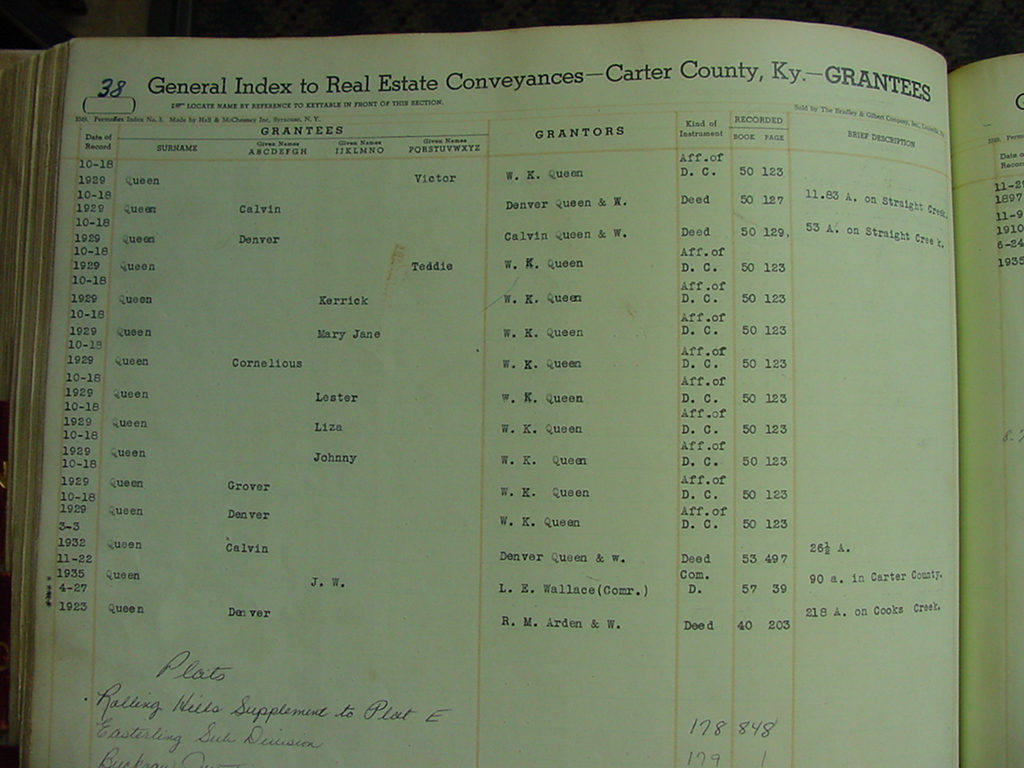 38 General Index to Real Estate Conveyances—Carter County, Ky.—GRANTEES
LOCATE NAME BY REFERENCE TO KEYTABLE IN FRONT OF THIS SECTION.
Made by Hall & McChesney Inc, Syracuse, N. Y. Sold by The Bradley & Gilbert Company, Inc.
Date of Record GRANTEES GRANTORS Kind of Instrument RECORDED BRIEF DESCRIPTION
SURNAME Given Names ABCDEFGH Given Names IJKLMNO Given Names PQRSTUVWXYZ BOOK PAGE
10-18 1929 Queen Victor W. K. Queen Aff.of D. C. 50 123
10-18 1929 Queen Calvin Denver Queen & W. Deed 50 127 11.83 A. on Straight Creek.
10-18 1929 Queen Denver Calvin Queen & W. Deed 50 129, 53 A. on Straight Creek.
10-18 1929 Queen Teddie W. K. Queen Aff.of D. C. 50 123
10-18 1929 Queen Kerrick W. K. Queen Aff.of D. C. 50 123
10-18 1929 Queen Mary Jane W. K. Queen Aff.of D. C. 50 123
10-18 1929 Queen Cornelious W. K. Queen Aff.of D. C. 50 123
10-18 1929 Queen Lester W. K. Queen Aff.of D. C. 50 123
10-18 1929 Queen Liza W. K. Queen Aff.of D. C. 50 123
10-18 1929 Queen Johnny W. K. Queen Aff.of D. C. 50 123
10-18 1929 Queen Grover W. K. Queen Aff.of D. C. 50 123
10-18 1929 Queen Denver W. K. Queen Aff.of D. C. 50 123
3-3 1932 Queen Calvin Denver Queen & w. Deed 53 497 26½ A.
11-22 1935 Queen J. W. L. E. Wallace(Comr.) Com. D. 57 39 90 a. in Carter County.
4-27 1923 Queen Denver R. M. Arden & W. Deed 40 203 218 A. on Cooks Creek.
Plats
Rolling Hills Supplement to Plat E 178 848
Easterling Sub Division 179 1
Date of Record
1897
11-9
1910
6-24
1935